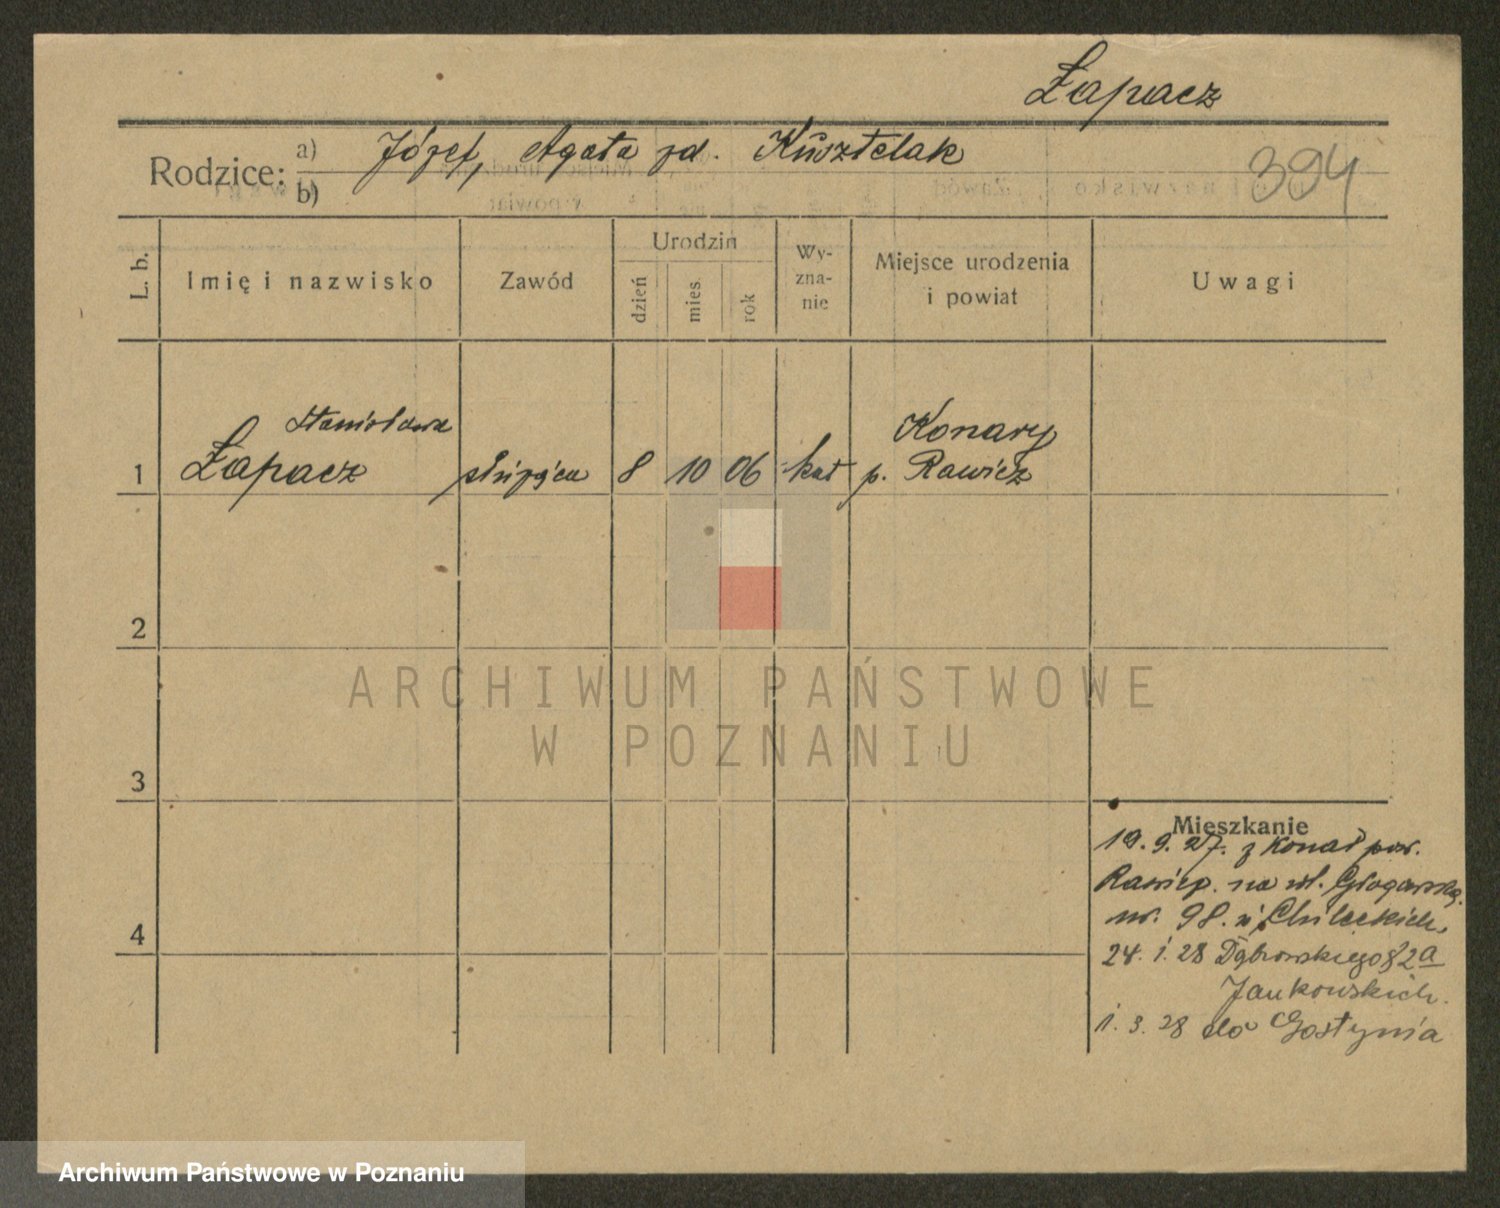 Łapacz
Rodzice: a) Józef, Agata zd. Kusztelak
b)
394
L. b.
Imię i nazwisko
Zawód
Urodzin
dzień
mies.
rok
Wy-
zna-
nie
Miejsce urodzenia
i powiat
Uwagi
Stanisława
1 Łapacz służąca 8 10 06 kat
Konary
p. Rawicz
2
3
4
Mieszkanie
19. 9. 27. z Konar pow.
Rawicz. na ul. Głogowską
nr. 98. u Chileckich,
24. 1. 28 Dąbrowskiego 82a
Jankowskich.
1. 3. 28 do Gostynia
ARCHIWUM PAŃSTWOWE
W POZNANIU
Archiwum Państwowe w Poznaniu